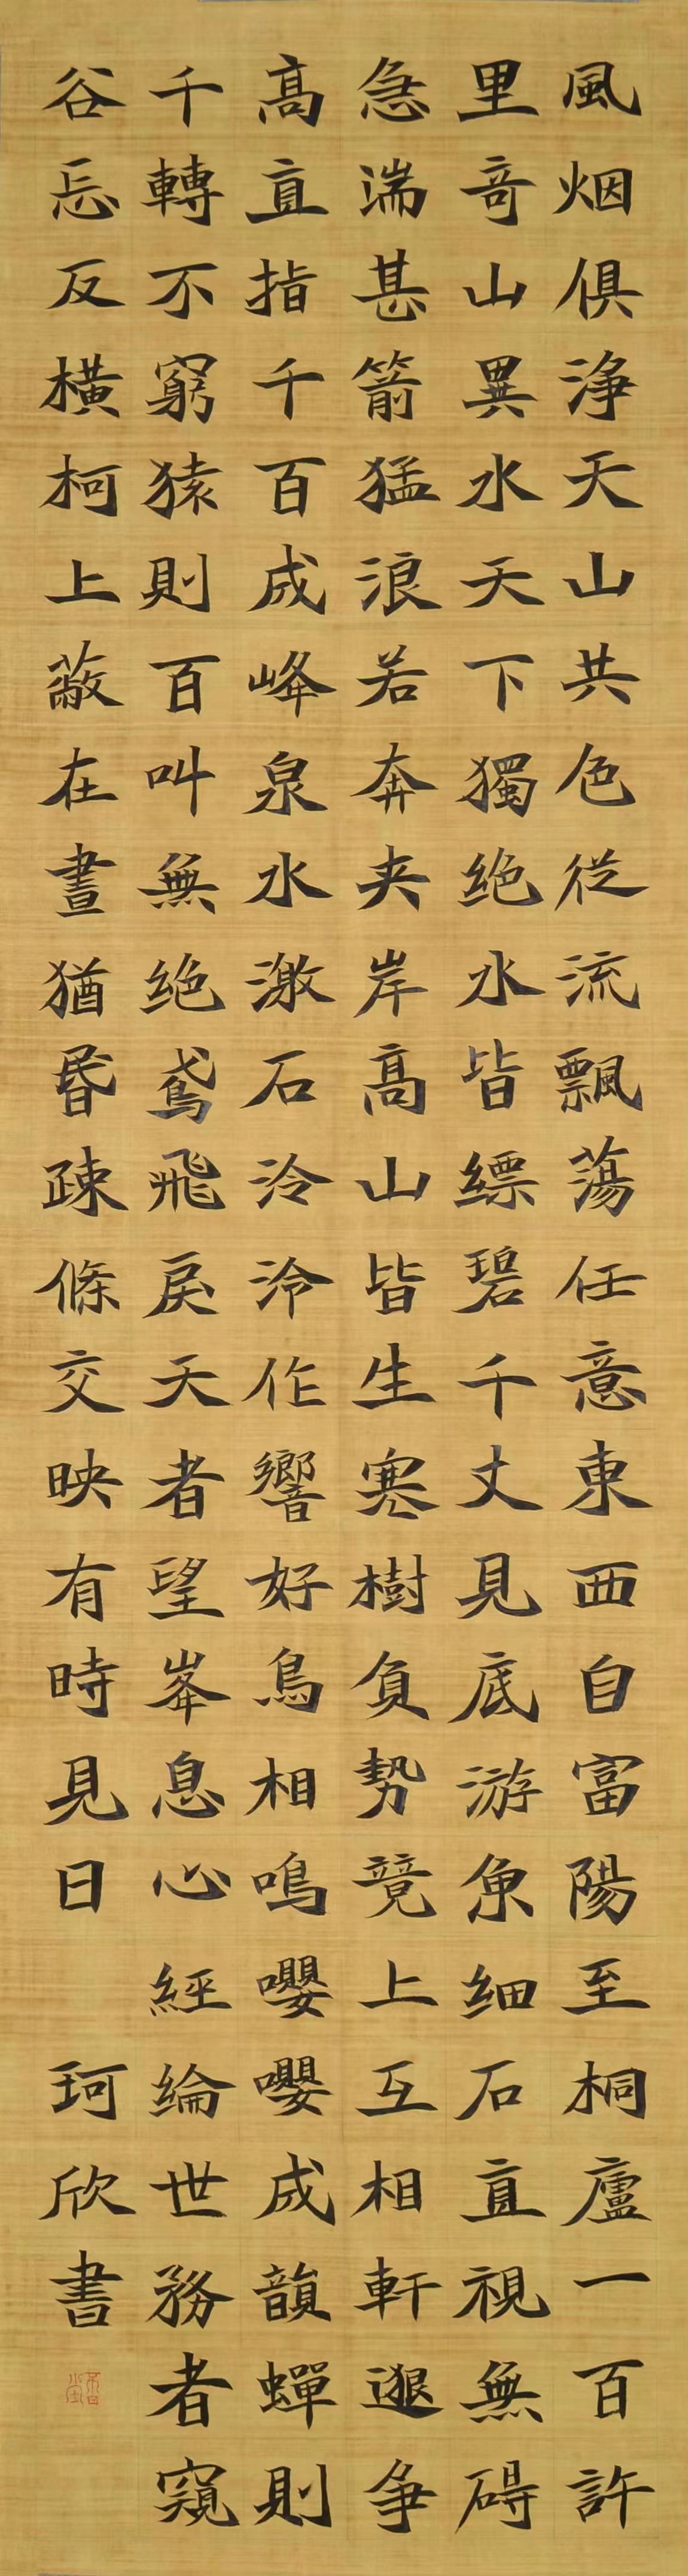 風烟俱浄天山共色從流飄蕩任意東西自富陽至桐廬一百許
里奇山異水天下獨绝水皆縹碧千丈見底游魚细石直視無碍
急湍甚箭猛浪若奔夹岸髙山皆生寒樹負勢競上互相軒邈争
髙直指千百成峰泉水激石泠泠作響好鳥相鳴嚶嚶成韻蟬則
千轉不窮猿則百叫無绝鳶飛戾天者望峯息心經綸世務者窺
谷忘反橫柯上蔽在晝猶昬疎條交映有時見日
珂欣書